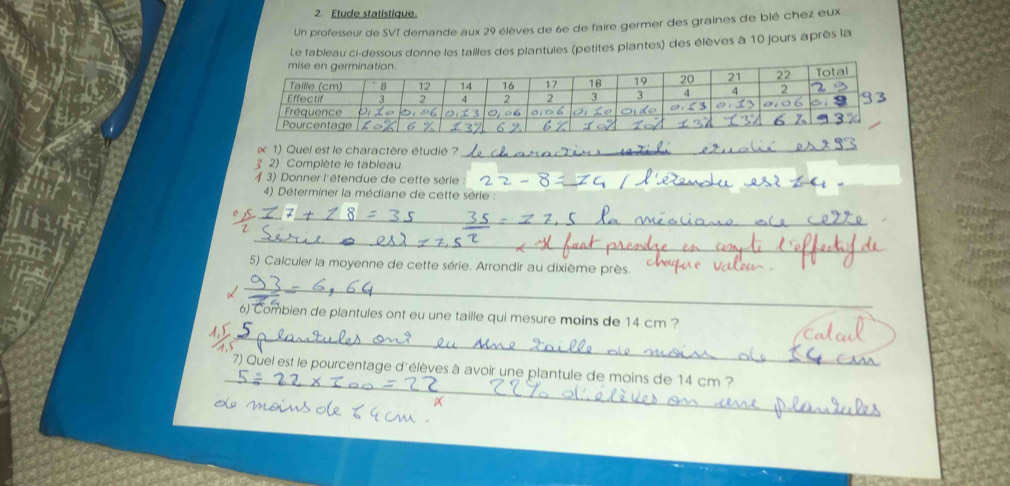 2. Etude statistique.
Un professeur de SVT demande aux 29 élèves de 6e de faire germer des graines de blé chez eux
Le tableau ci-dessous donne les tailles des plantules (petites plantes) des élèves à 10 jours après la
mise en germination.
Taille (cm) 8 12 14 16 17 18 19 20 21 22 Total
Effectif 3 2 4 2 2 3 3 4 4 2 29
Fréquence 0,10 0,06 0,13 0,06 0,06 0,10 0,10 0,13 0,13 0,06 0,9 93
Pourcentage 10% 6% 13% 6% 6% 10% 10% 13% 13% 6% 93%
1) Quel est le charactère étudié ? Le charactère étudié est 93
3 2) Complète le tableau.
1 3) Donner l'étendue de cette série : 22 - 8 = 14 / l'étendu est 14.
4) Déterminer la médiane de cette série :
17 + 18 = 35 35/2 = 17,5 La médiane de cette
Série est 17,5 il faut prendre en compte l'effectif de
chaque valeur.
5) Calculer la moyenne de cette série. Arrondir au dixième près.
93 = 6,64
6) Combien de plantules ont eu une taille qui mesure moins de 14 cm ?
calcul
1,5/1,5 5 plantules ont eu une taille de moin de 14 cm
7) Quel est le pourcentage d'élèves à avoir une plantule de moins de 14 cm ?
5 ÷ 22 × 100 = 22 22% d'élèves on une plantules
de moins de 14cm.